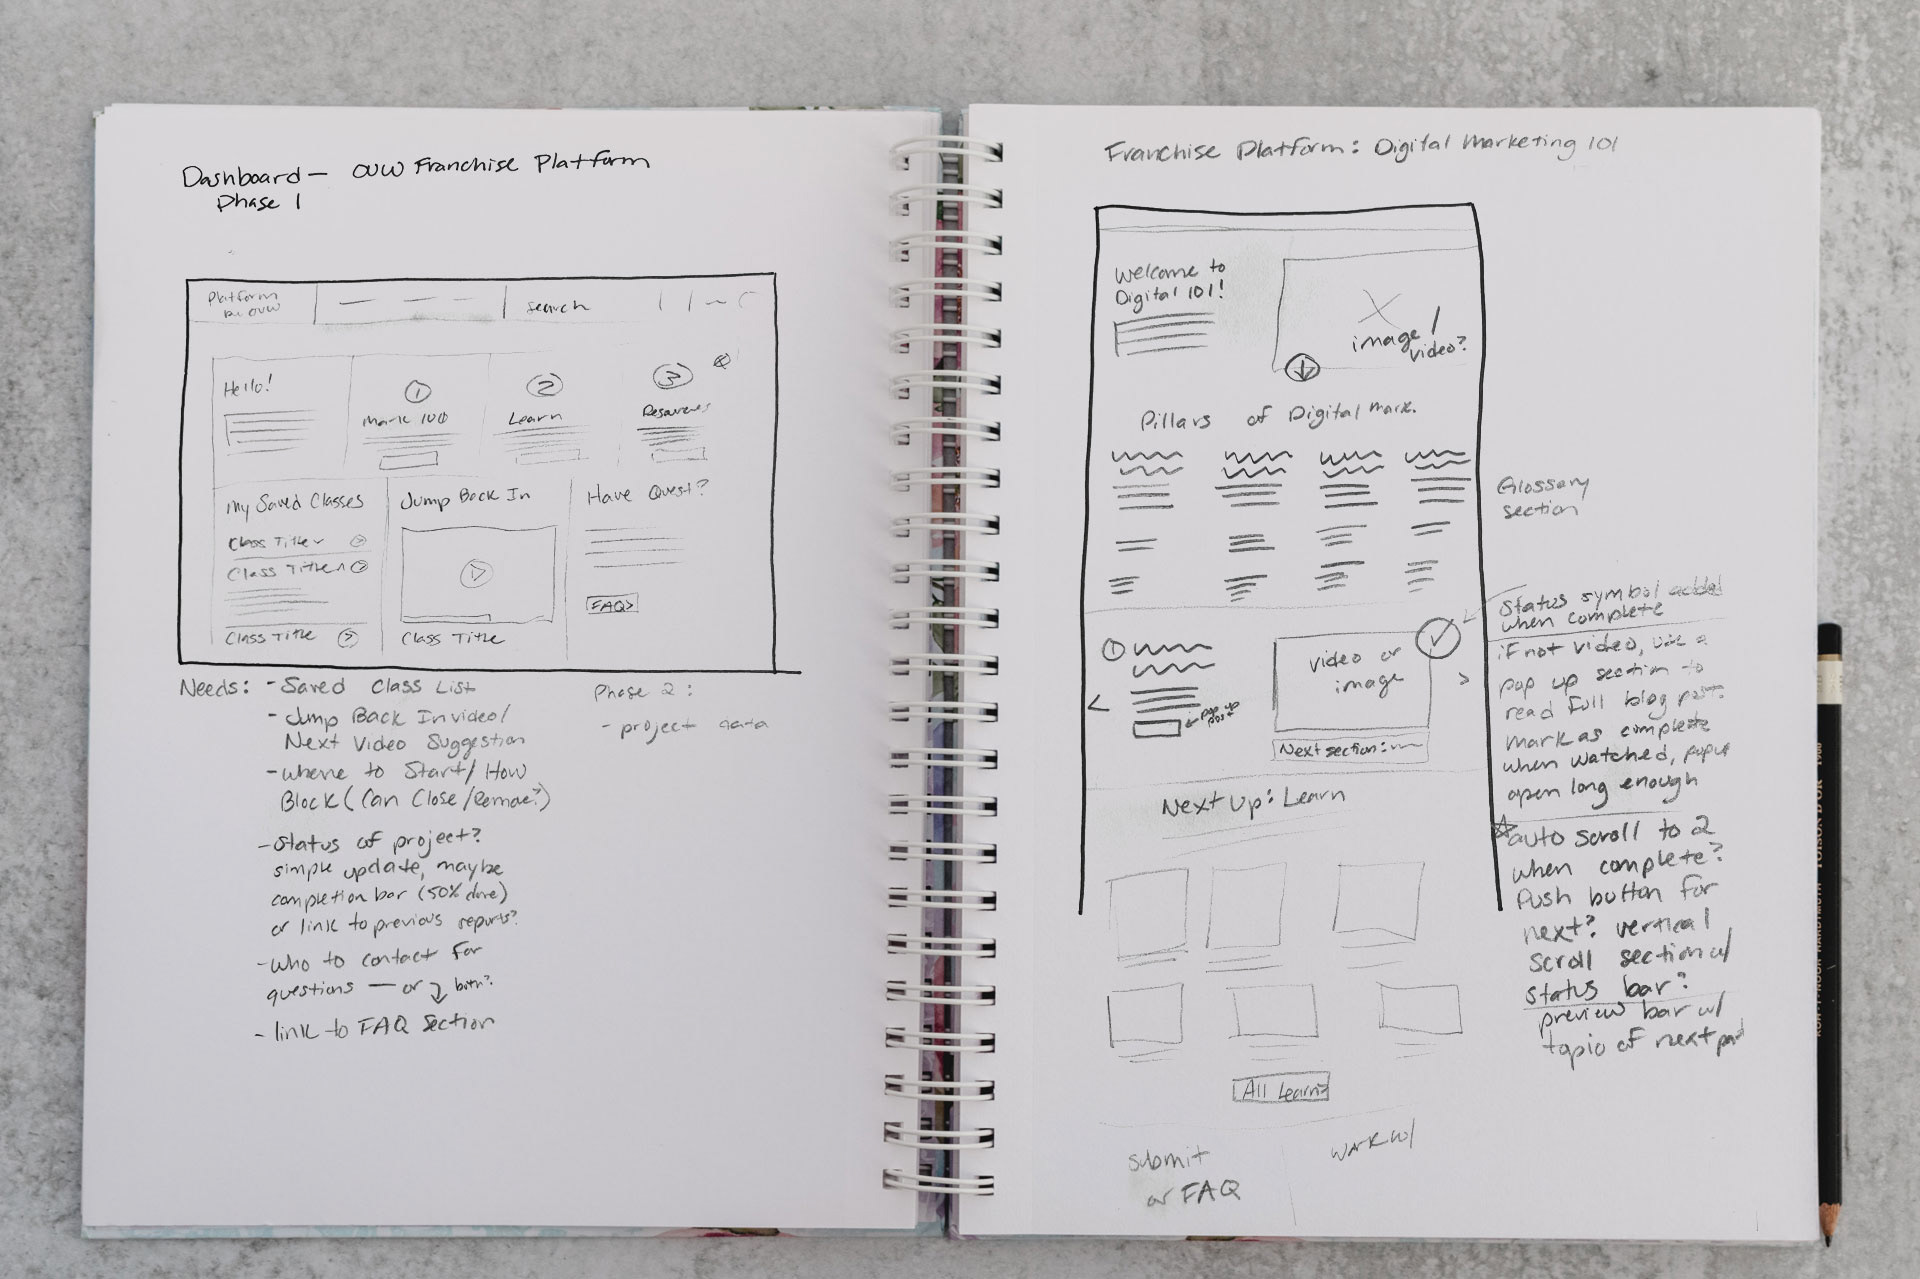 Dashboard — OUW Franchise Platform
Phase 1
Platform
by OUW
Search
Hello!
1
Mark 100
2
Learn
3
Resources
My Saved Classes
Class Title
Class Title
Class Title
Jump Back In
Class Title
Have Quest?
FAQ>
Needs: - Saved Class List
- Jump Back In video/
Next Video Suggestion
- Where to Start/How
Block (Can Close/Remove?)
- Status of project?
simple update, maybe
completion bar (50% done)
or link to previous reports?
- Who to contact for
questions — or both?
- link to FAQ Section
Phase 2:
- project data
Franchise Platform: Digital Marketing 101
Welcome to
Digital 101!
image/
video?
Pillars of Digital Mark.
Glossary
section
1
pop up
post
video or
image
Next section:
Status symbol added
when complete
if not video, use a
pop up section to
read full blog post.
mark as complete
when watched, popup
open long enough
auto scroll to 2
when complete?
Push button for
next? vertical
scroll section w/
status bar?
preview bar w/
topic of next
Next Up: Learn
All Learn>
Submit
or FAQ
work w/